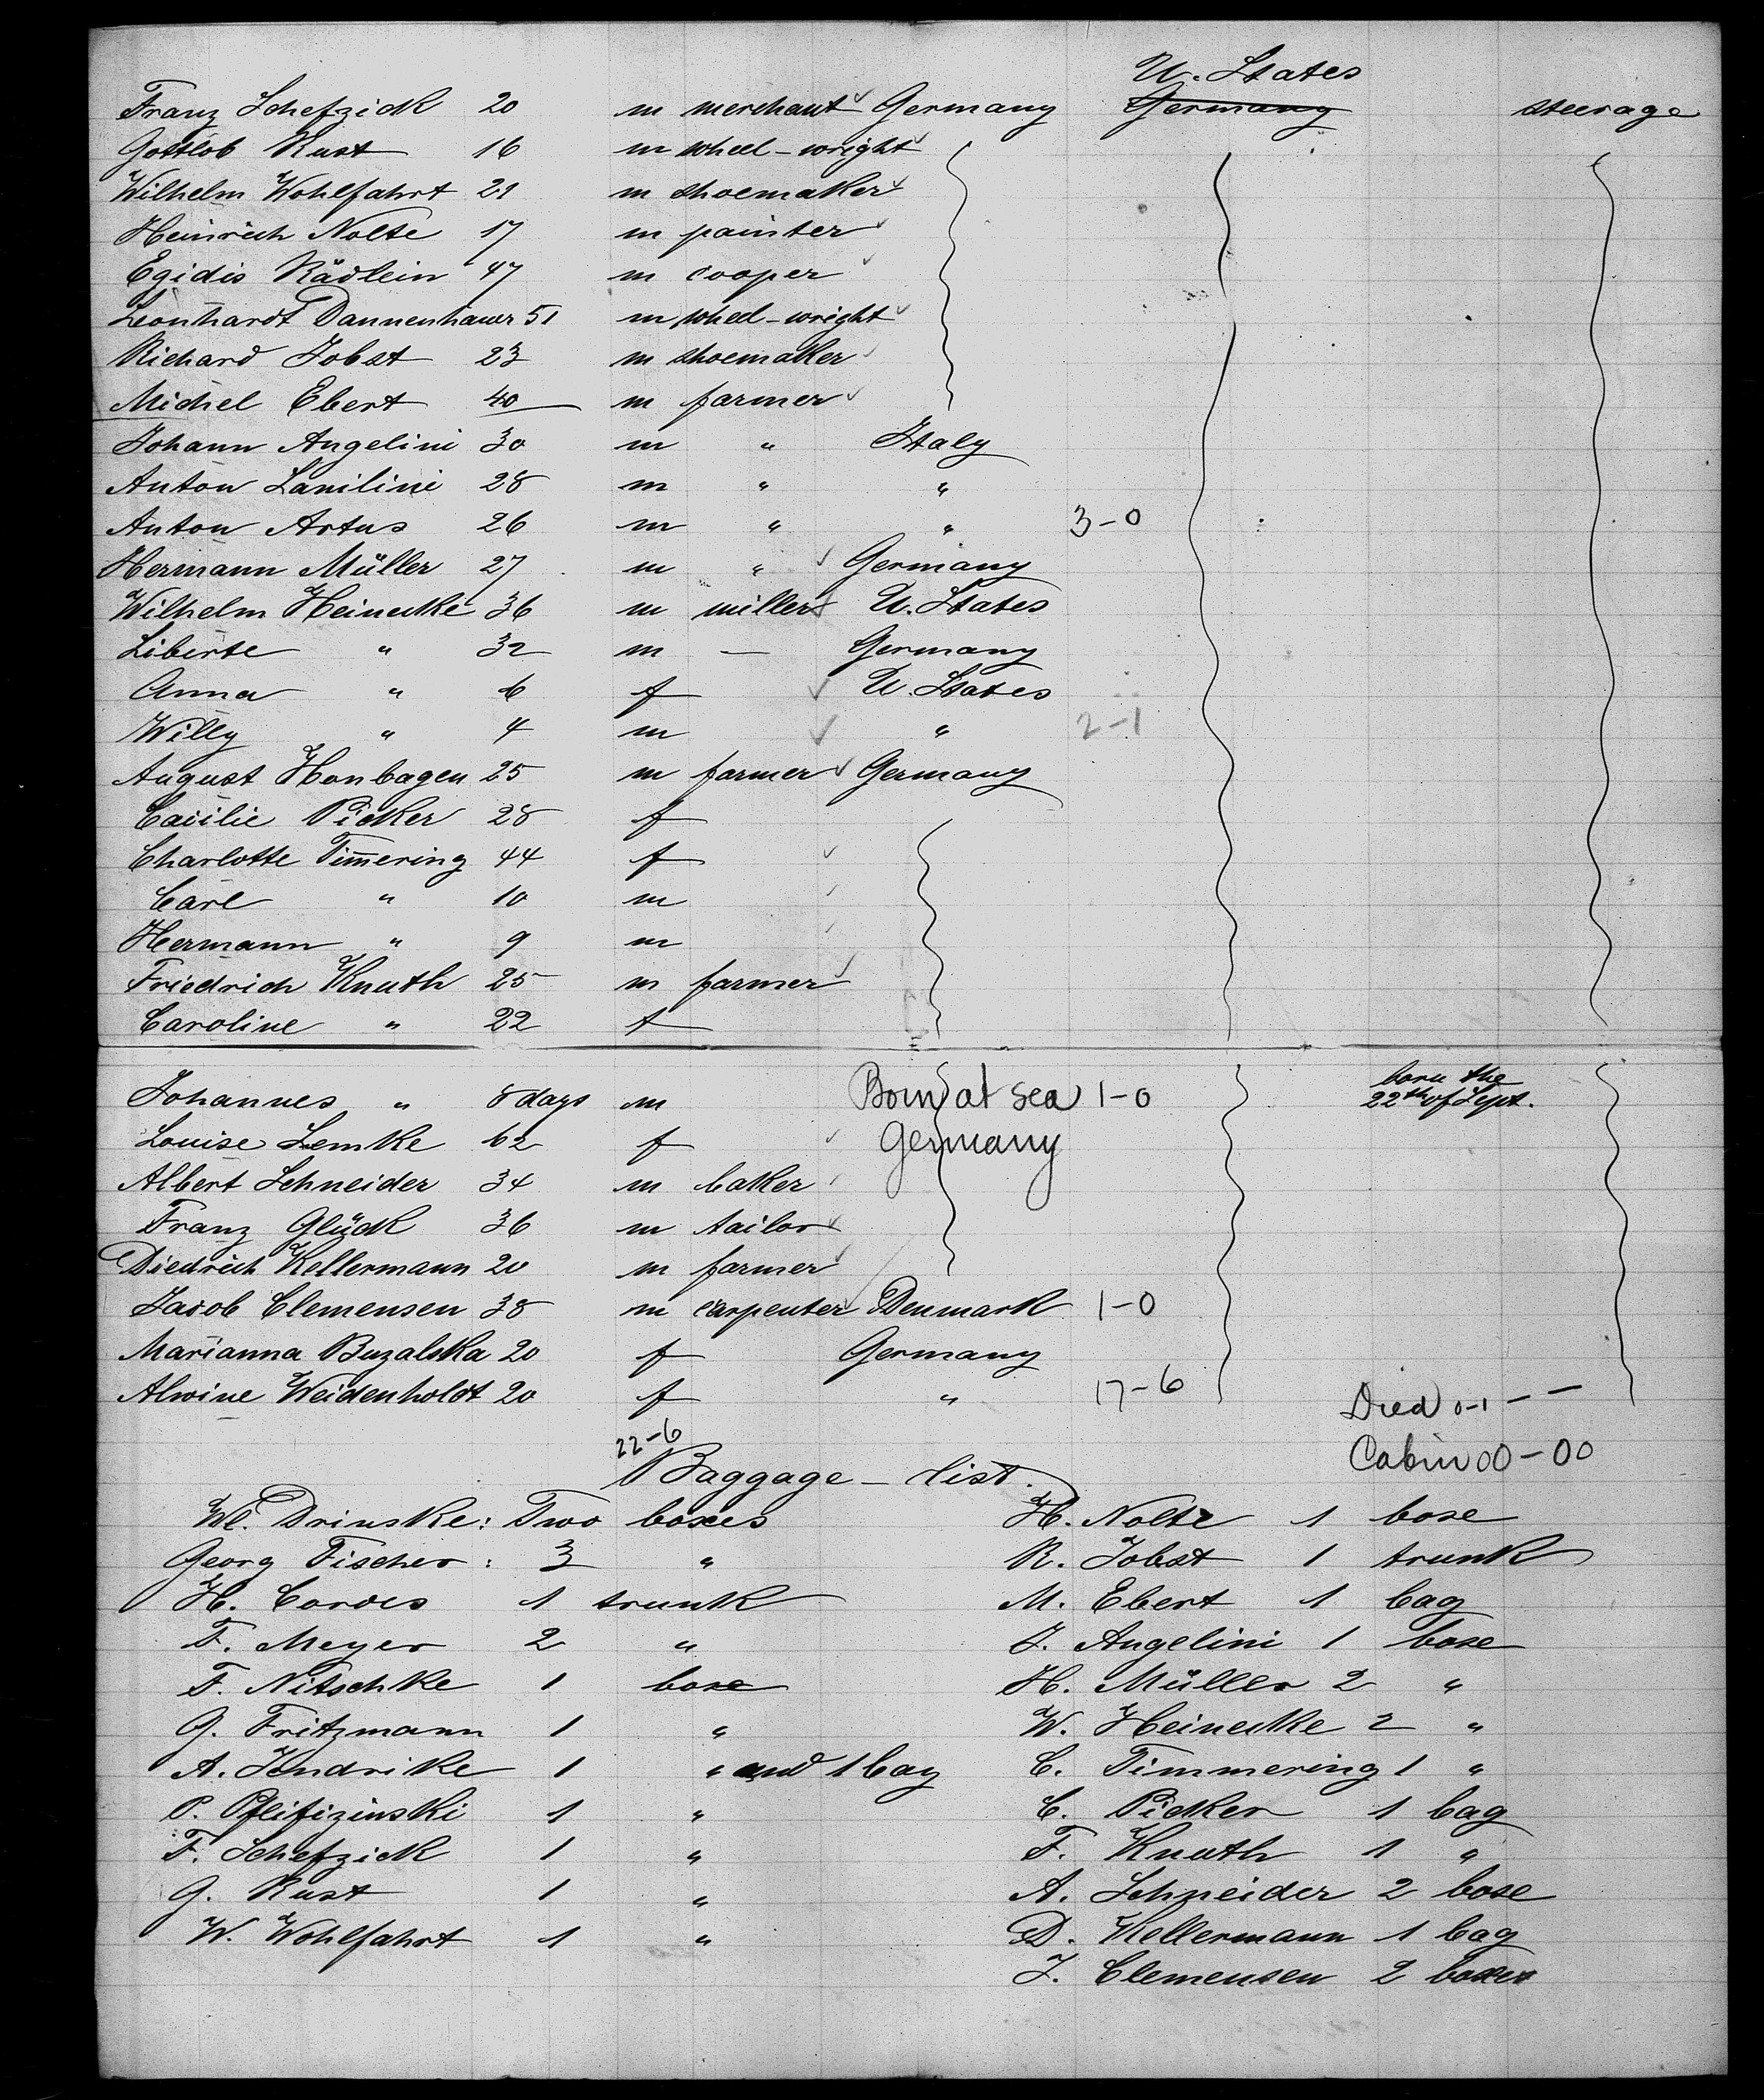 U. States
Franz Schefzick 20 m merchant Germany Germany steerage
Gottlob Rust 16 m wheel-wright
Wilhelm Wohlfahrt 21 m shoemaker
Heinrich Nolte 17 m painter
Egidis Rädlein 47 m cooper
Leonhardt Dannenhauer 51 m wheel-wright
Richard Jobst 23 m shoemaker
Michel Ebert 40 m farmer
Johann Angelini 30 m " Italy
Anton Lanilini 28 m " "
Anton Artus 26 m " " 3-0
Hermann Müller 27 m " Germany
Wilhelm Heinecke 36 m miller U. States
Liberte " 32 m — Germany
Anna " 6 f U. States
Willy " 4 m " 2-1
August Honbagen 25 m farmer Germany
Cacilie Picker 28 f
Charlotte Tim̅ering 44 f
Carl " 10 m
Hermann " 9 m
Friedrich Knuth 25 m farmer
Caroline " 22 f
Johannes " 8 days m Born at sea 1-0 born the 22th of Sept.
Louise Lemke 62 f Germany
Albert Schneider 34 m baker
Franz Glück 36 m tailor
Diedrich Kellermann 20 m farmer
Jacob Clemensen 38 m carpenter Denmark 1-0
Marianna Buzalska 20 f Germany
Alwine Weidenholdt 20 f " 17-6
Died 0-1 - -
22-6
Cabin 00-00
Baggage-list.
Wl. Drinske: Two boxes
Georg Fischer: 3 "
H. Cordes 1 trunk
F. Meyer 2 "
F. Nitschke 1 boxe
G. Fritzmann 1 "
A. Jendrike 1 " and 1 bag
P. Pflifizinski 1 "
F. Schefzick 1 "
G. Rust 1 "
W. Wohlfahrt 1 "
H. Nolte 1 boxe
R. Jobst 1 trunk
M. Ebert 1 bag
J. Angelini 1 boxe
H. Müller 2 "
W. Heinecke 2 "
C. Timmering 1 "
C. Picker 1 bag
F. Knuth 1 "
A. Schneider 2 boxe
D. Kellermann 1 bag
J. Clemensen 2 boxes